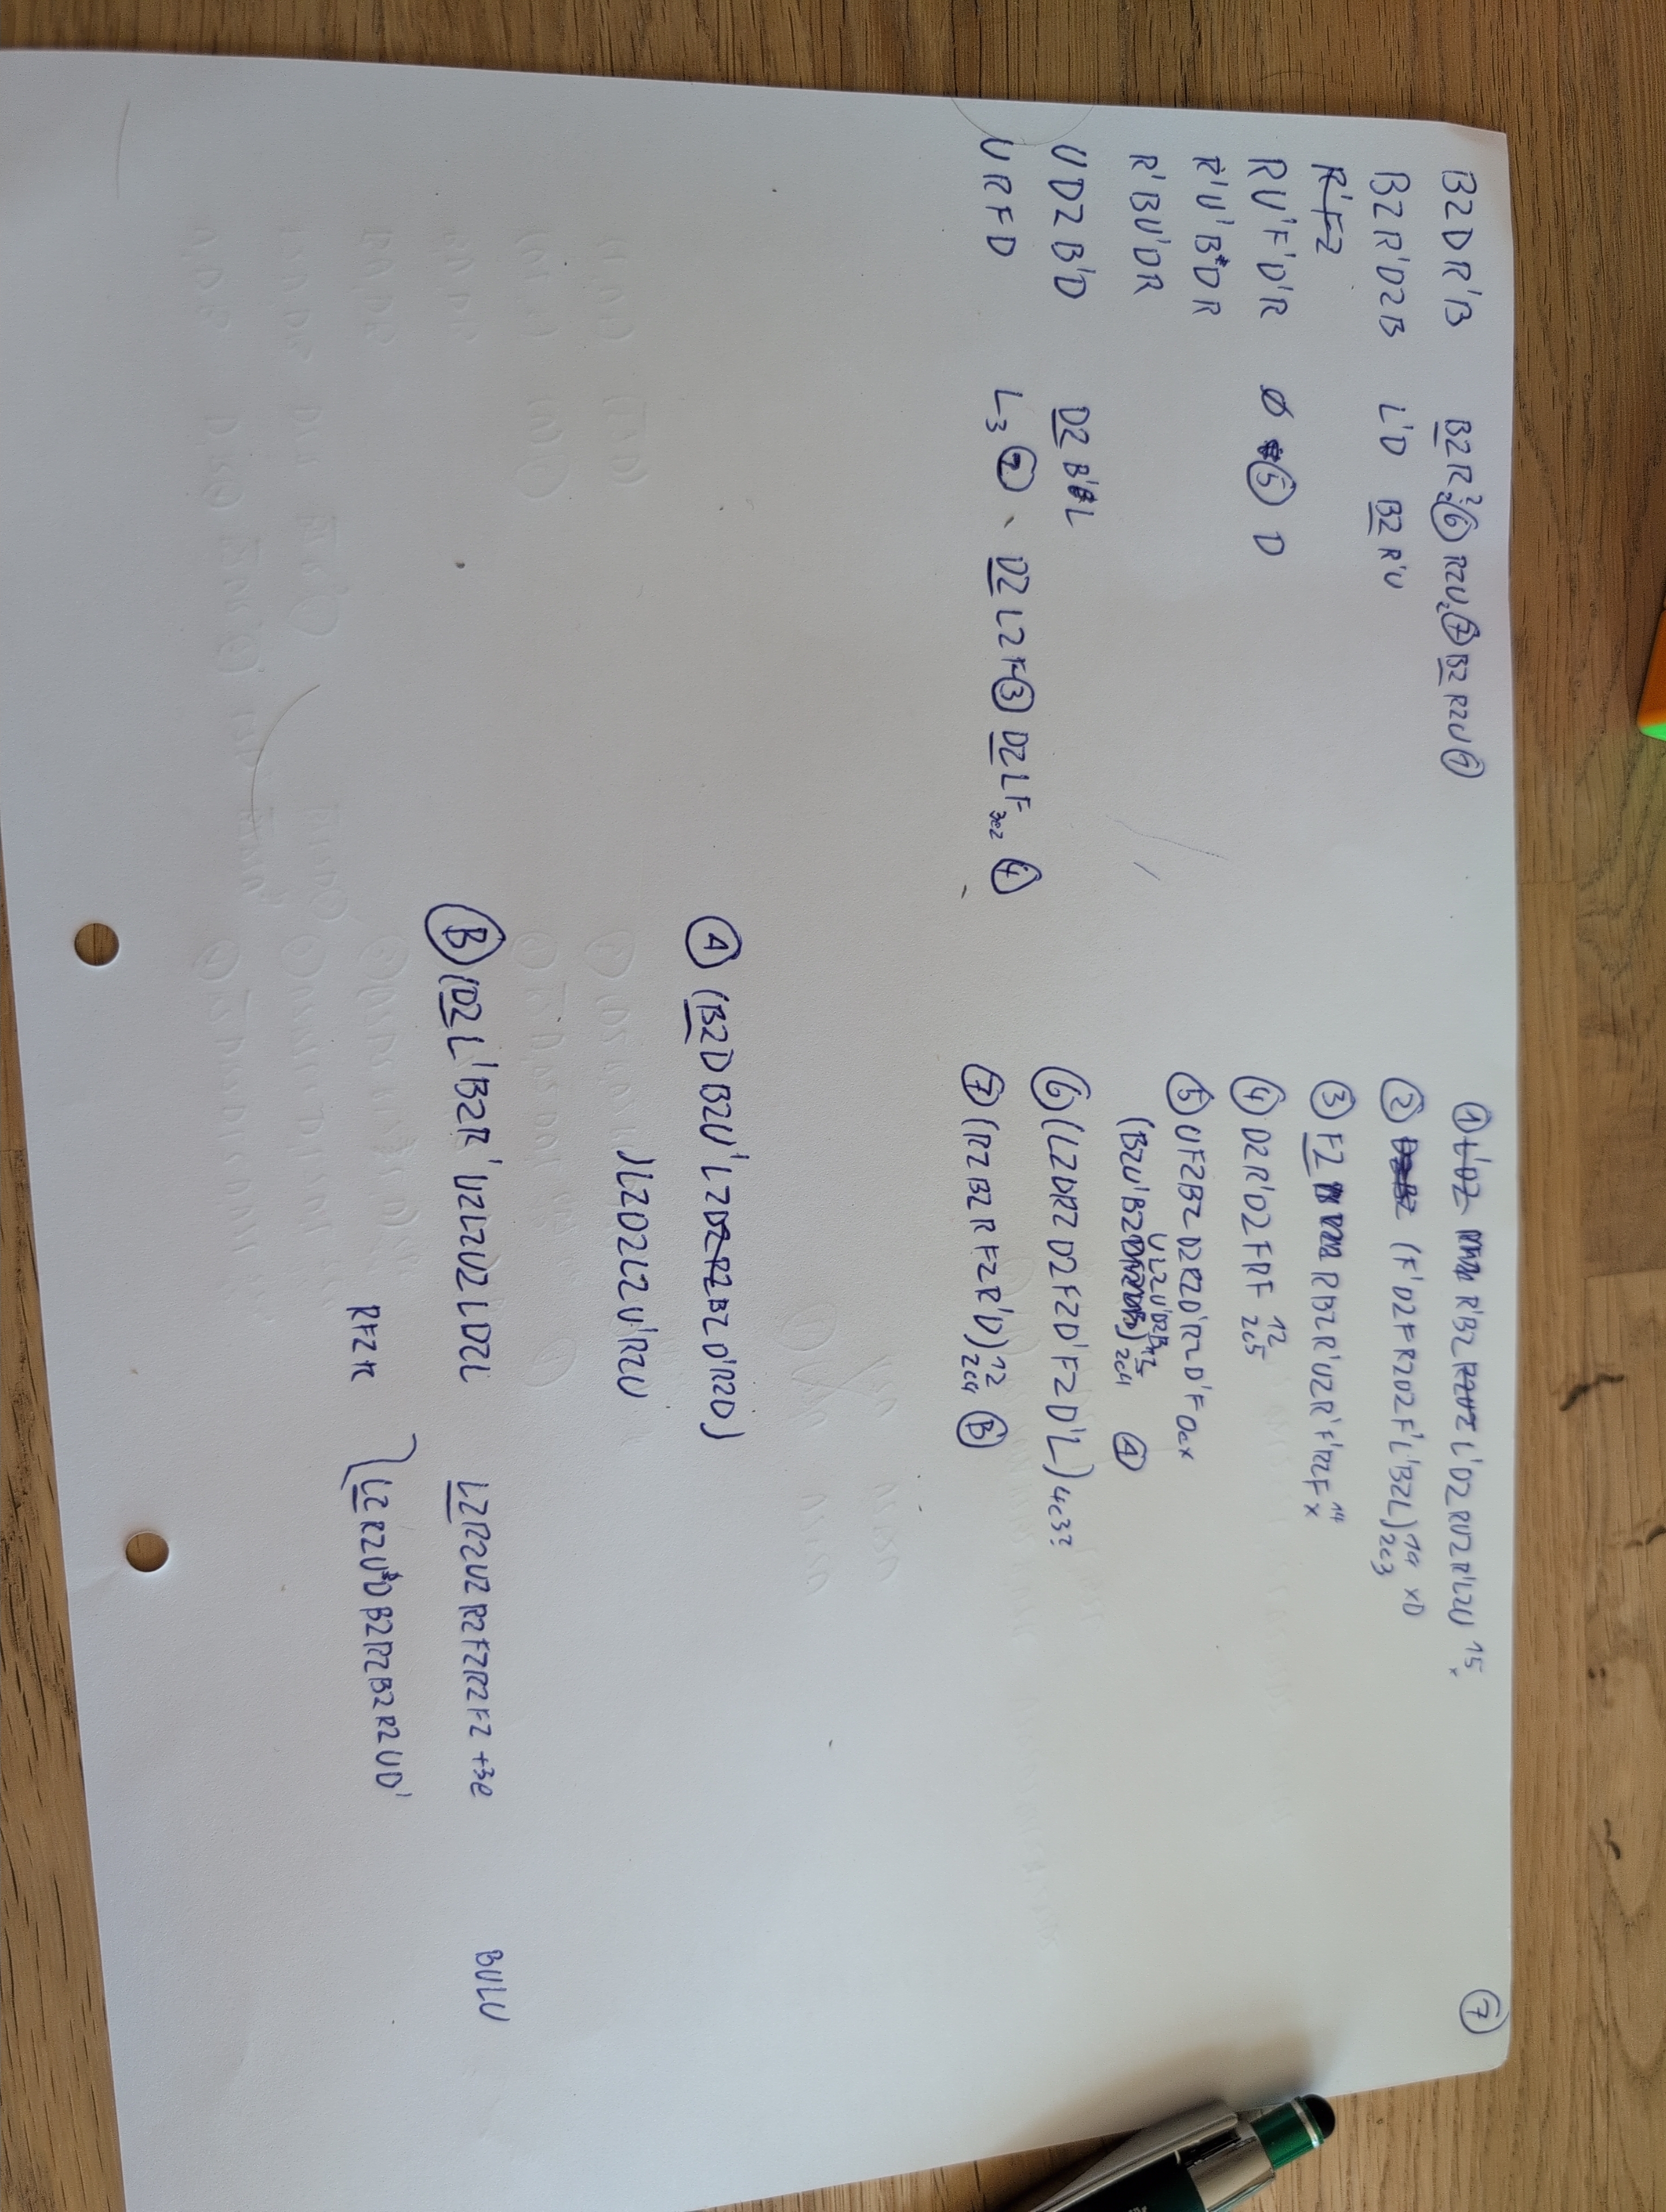 ⑦
B2DR'B B2R2⑥ R2U2⑦ B2 R2U⑦
B2R'D2B L'D B2 R'U
R'F2
RU'F'D'R ø ⑤ D
R'U'B'DR
R'BU'DR
UD2B'D D2 B'L
URFD L3 ② D2L2F③ D2LF ④
① L'D2 R'B2 R2U2 L'D2 RU2R'L2U 15
② (F'D2FR2D2F'L'B2L) 14 2c3 xD
③ F2 RB2R'U2R'F'R2F 14 x
④ D2R'D2FRF 12 2c5
⑤ UF2B2D2R2D'R2D'F
(B2U'B2 U'L2U'D2B) 15 2c4 Ⓐ
⑥ (L2DR2D2F2D'F2D'L) 4c3?
⑦ (R2B2RF2R'D) 12 2c4 Ⓑ
Ⓐ (B2DB2U'L2 B2D'R2D)
L2D2L2U'R2U
Ⓑ (D2L'B2R'U2L2U2LD2L L2R2U2R2F2R2F2 +3e BULU
RF2R (L2R2U'D B2R2B2R2UD'